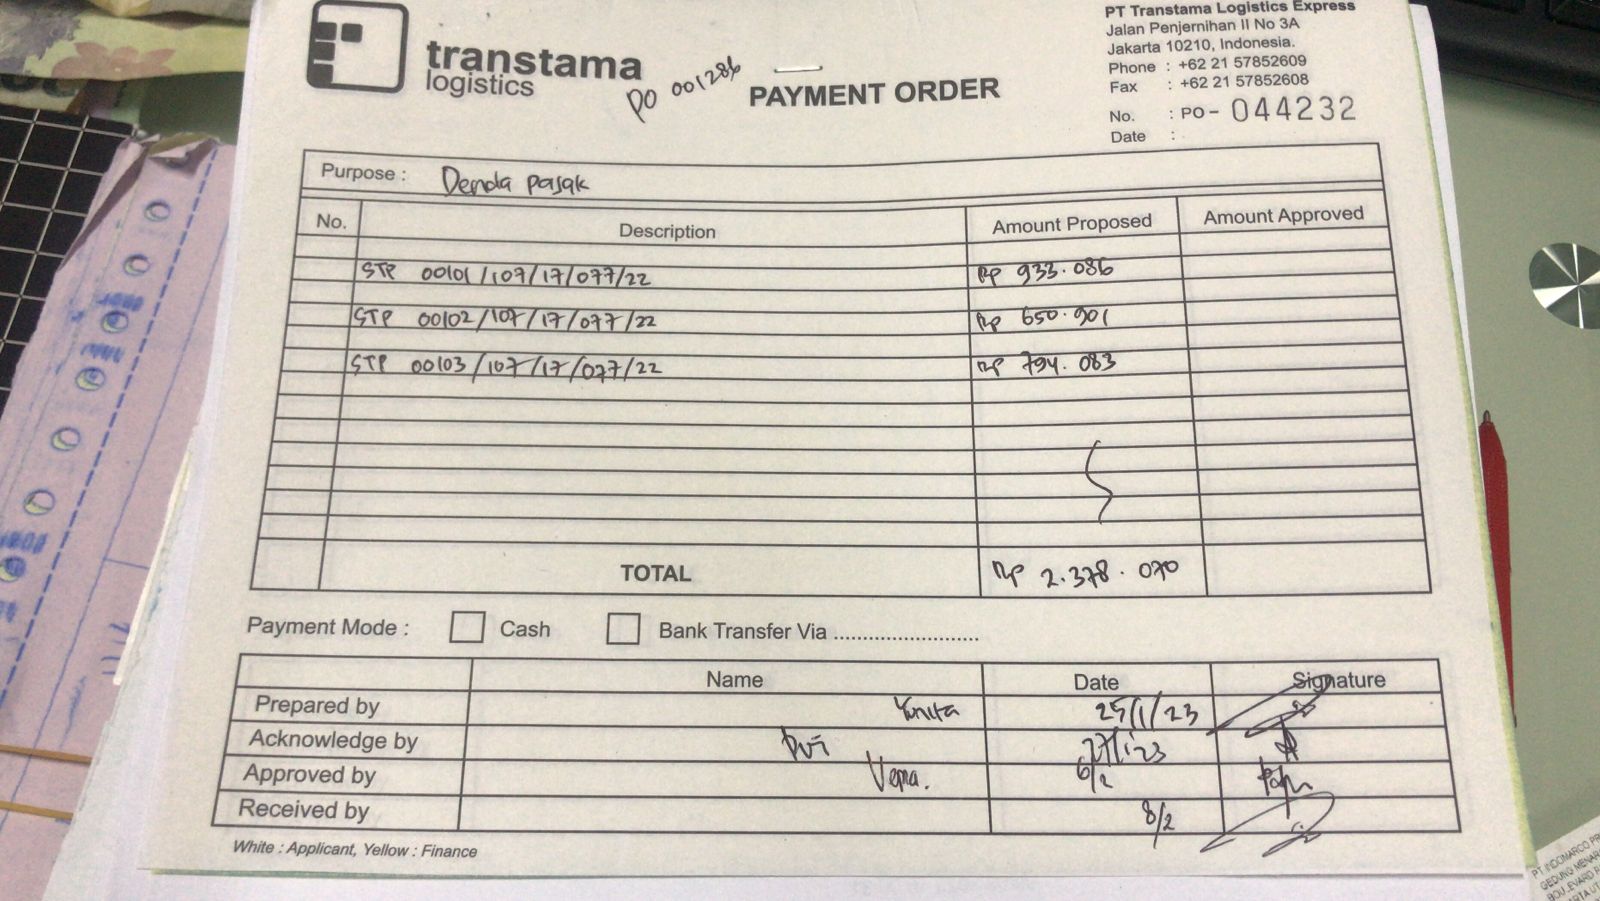 transtama
logistics
PO 001286
PAYMENT ORDER
PT Transtama Logistics Express
Jalan Penjernihan II No 3A
Jakarta 10210, Indonesia.
Phone : +62 21 57852609
Fax : +62 21 57852608
No. : PO- 044232
Date :
Purpose : Denda pajak
No. Description Amount Proposed Amount Approved
STP 00101/107/17/077/22 Rp 933.086
STP 00102/107/17/077/22 Rp 650.901
STP 00103/107/17/077/22 Rp 794.083
TOTAL Rp 2.378.070
Payment Mode : Cash Bank Transfer Via ..........................
Name Date Signature
Prepared by Yunita 25/1/23
Acknowledge by 27/1 23
Approved by 6/2
Received by 8/2
White : Applicant, Yellow : Finance
PT. INDOMARCO
GEDUNG